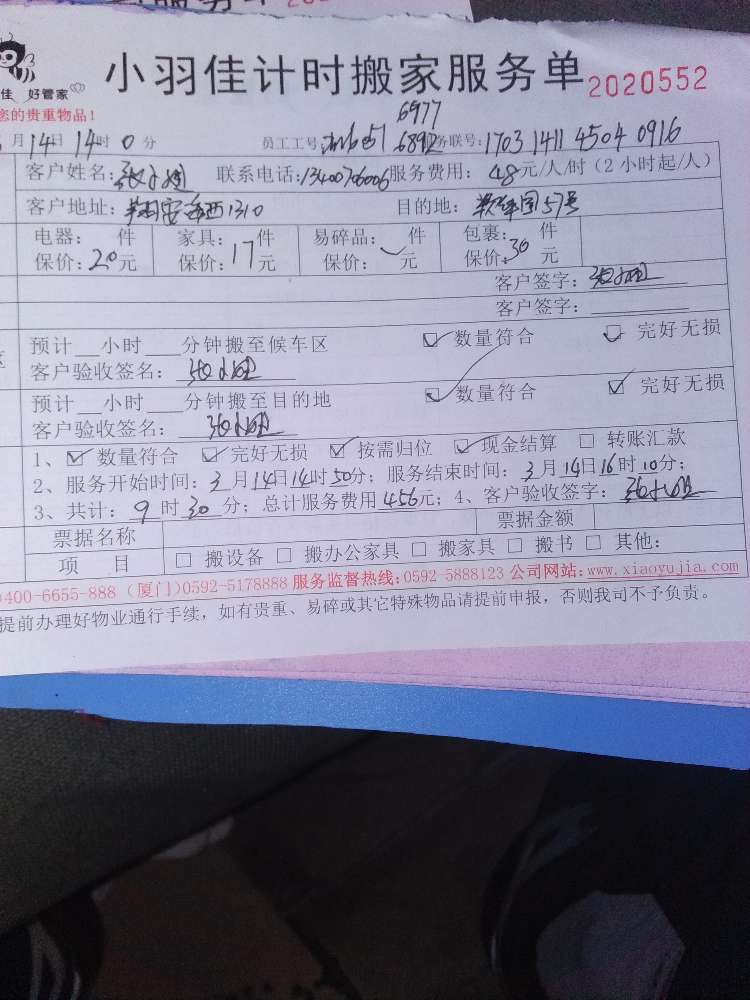 小羽佳计时搬家服务单 2020552
佳 好管家
您的贵重物品!
6977
月14日 14时0分 员工工号: 6892 务联号:1703 1411 4504 0916
客户姓名:张小姐 联系电话:13400706006 服务费用: 48元/人/时(2小时起/人)
客户地址: 西1310 目的地: 57号
电器: 件 家具: 件 易碎品: 件 包裹: 件
保价:20元 保价:17元 保价: 元 保价:30元
客户签字:张小姐
客户签字:
预计__小时___分钟搬至候车区 ☑数量符合 ☑完好无损
客户验收签名:张小姐
预计__小时___分钟搬至目的地 ☑数量符合 ☑完好无损
客户验收签名:张小姐
1、☑数量符合 ☑完好无损 ☑按需归位 ☑现金结算 □转账汇款
2、服务开始时间:3月14日14时50分;服务结束时间:3月14日16时10分;
3、共计:9时30分;总计服务费用456元;4、客户验收签字:张小姐
票据名称 票据金额
项 目 □搬设备 □搬办公家具 □搬家具 □搬书 □其他:
400-6655-888 (厦门)0592-5178888 服务监督热线:0592-5888123 公司网站:www.xiaoyujia.com
提前办理好物业通行手续,如有贵重、易碎或其它特殊物品请提前申报,否则我司不予负责。